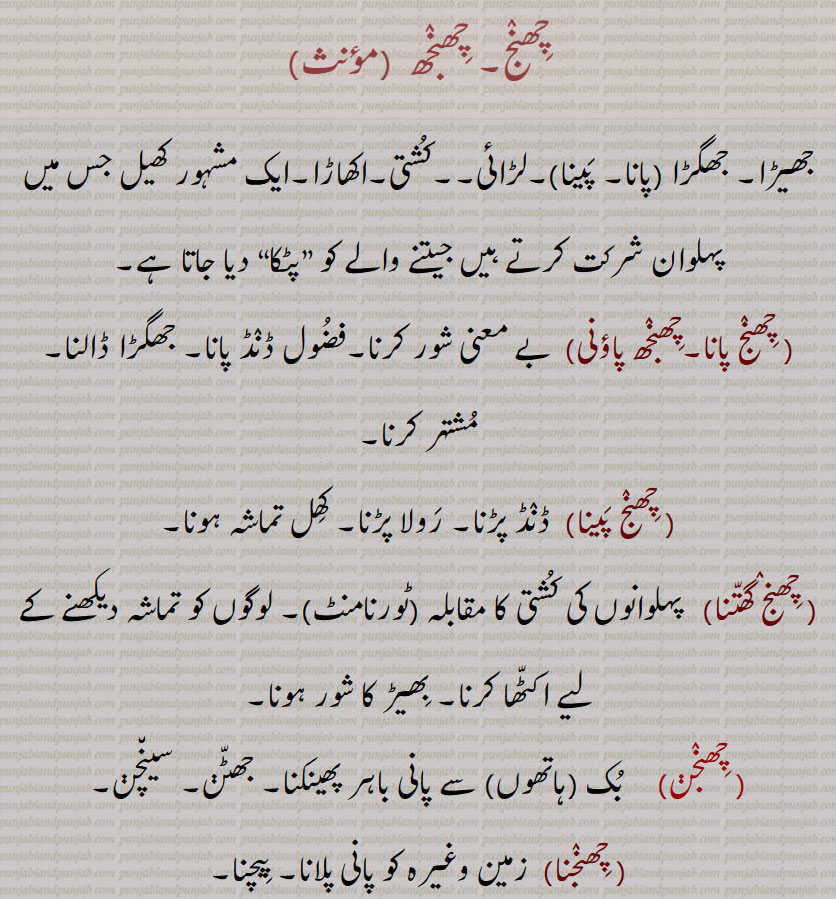 چِھنْج۔ چِھنْجھ (مؤنث)
جھیڑا۔ جھگڑا (پانا۔ پَینا)۔لڑائی۔۔کُشتی۔اکھاڑا۔ایک مشہور کھیل جس میں
پہلوان شرکت کرتے ہیں جیتنے والے کو ”پٹکا“ دیا جاتا ہے۔
(چِھنْج پانا۔چِھنْجھ پاؤنی) بے معنی شور کرنا۔فضُول ڈنْڈ پانا۔ جھگڑا ڈالنا۔
مُشتہر کرنا۔
(چِھنْج پَینا) ڈنْڈ پڑنا۔ رَولا پڑنا۔ کِھل تماشہ ہونا۔
(چِھنْج گَھتّنا) پہلوانوں کی کُشتی کا مقابلہ (ٹورنامنٹ)۔ لوگوں کو تماشہ دیکھنے کے
لیے اکٹھّا کرنا۔ بِھیڑ کا شور ہونا۔
(چِھنْجݨ) بُک (ہاتھوں) سے پانی باہر پھینکنا۔ جھٹّݨ۔ سینچّݨ۔
(چِھنْجْنا) زمین وغیرہ کو پانی پلانا۔ پِیچنا۔